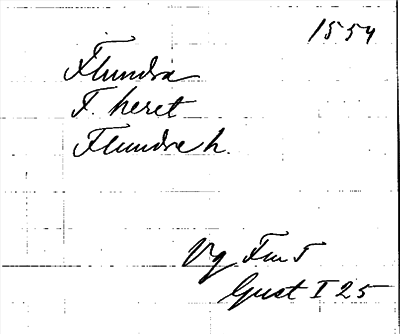 1554
Flundra
F. heret
Flundra h.
Vg
Gust I 25